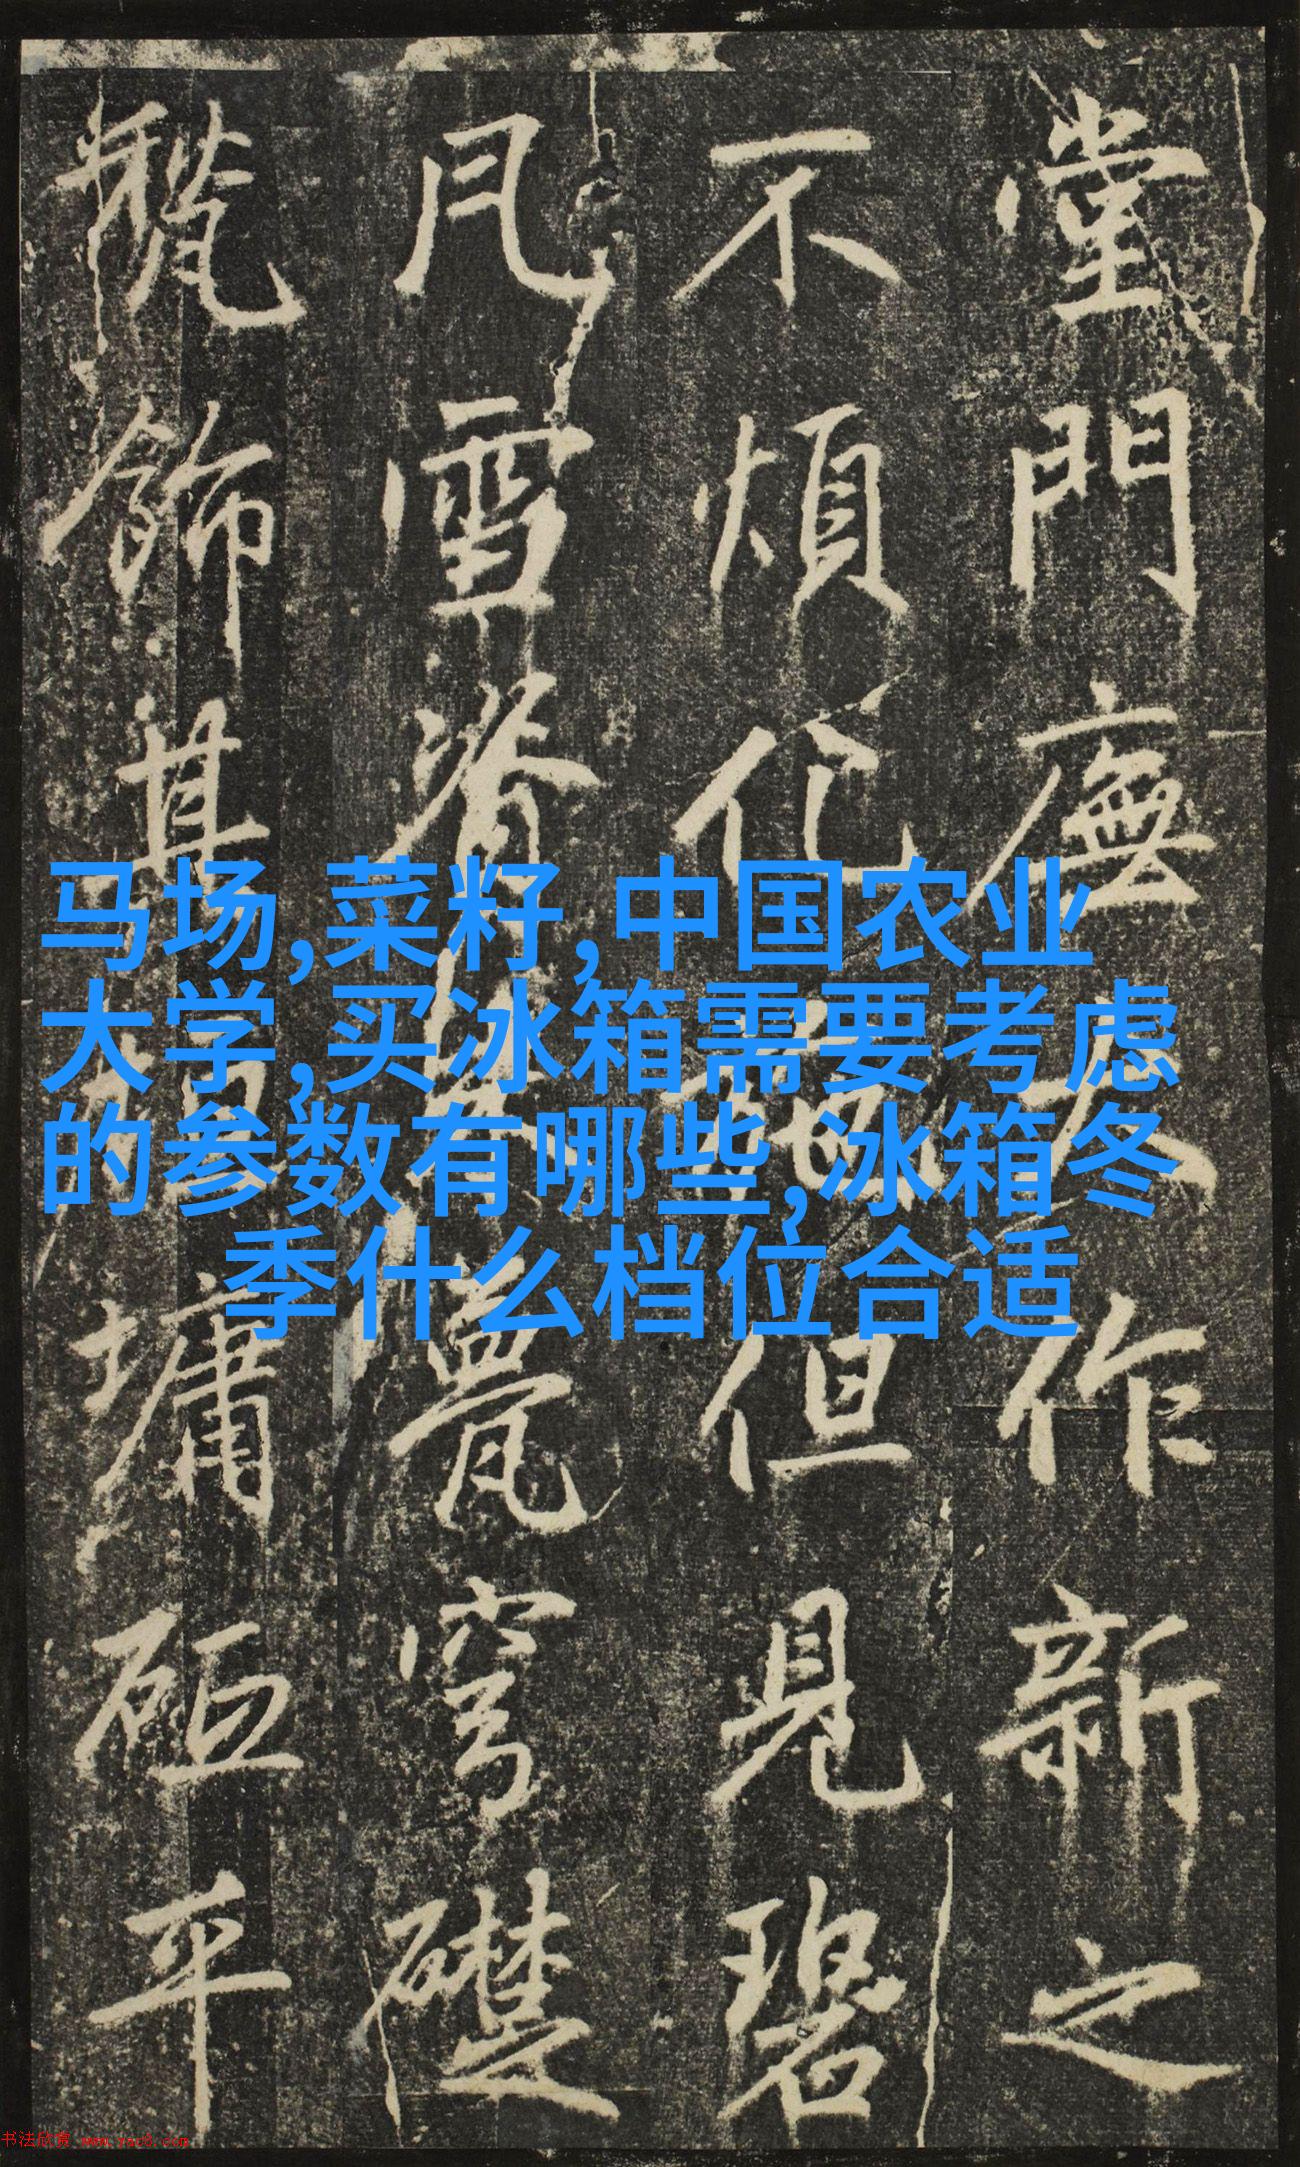 堂門廡大作新之
不煩化但見碧
凡雪脊瓮穹礎
飾其墉砠平
马场,菜籽,中国农业
大学,买冰箱需要考虑
的参数有哪些,冰箱冬
季什么档位合适
书法欣赏 www.yac8.com